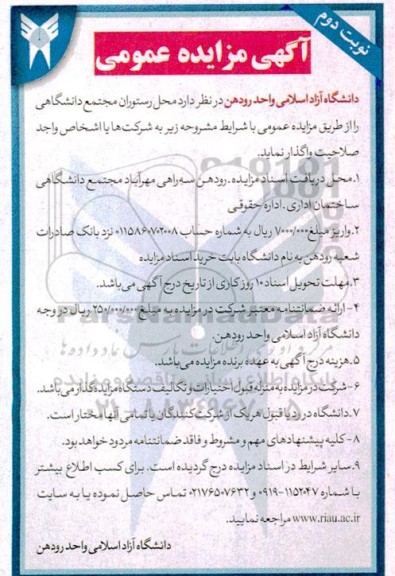 نوبت دوم
آگهی مزایده عمومی
دانشگاه آزاد اسلامی واحد رودهن در نظر دارد محل رستوران مجتمع دانشگاهی
را از طریق مزایده عمومی با شرایط مشروحه زیر به شرکت‌ها یا اشخاص واجد
صلاحیت واگذار نماید.
۱. محل دریافت اسناد مزایده . رودهن سه‌راهی مهرآباد مجتمع دانشگاهی
ساختمان اداری . اداره حقوقی
۲. واریز مبلغ ۷۰۰۰/۰۰۰ ریال به شماره حساب ۰۱۱۵۸۶۰۷۰۲۰۰۸ نزد بانک صادرات
شعبه رودهن به نام دانشگاه بابت خرید اسناد مزایده
۳. مهلت تحویل اسناد ۱۰ روز کاری از تاریخ درج آگهی می‌باشد.
۴- ارائه ضمانتنامه معتبر شرکت در مزایده به مبلغ ۲۵۰/۰۰۰/۰۰۰ ریال در وجه
دانشگاه آزاد اسلامی واحد رودهن.
۵. هزینه درج آگهی به عهده برنده مزایده می‌باشد.
۶- شرکت در مزایده به منزله قبول اختیارات و تکالیف دستگاه مزایده گذار می‌باشد.
۷. دانشگاه در رد یا قبول هر یک از شرکت‌کنندگان یا تمامی آنها مختار است.
۸- کلیه پیشنهادهای مبهم و مشروط و فاقد ضمانتنامه مردود خواهد بود.
۹. سایر شرایط در اسناد مزایده درج گردیده است. برای کسب اطلاع بیشتر
با شماره ۱۱۵۲۰۴۷-۰۹۱۹ و ۰۲۱۷۶۵۰۷۶۳۲ تماس حاصل نموده یا به سایت
www.riau.ac.ir مراجعه نمایید.
دانشگاه آزاد اسلامی واحد رودهن